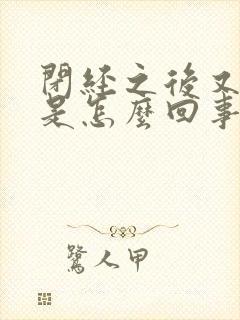 閉經之後又
是怎麼回事
鷺人甲